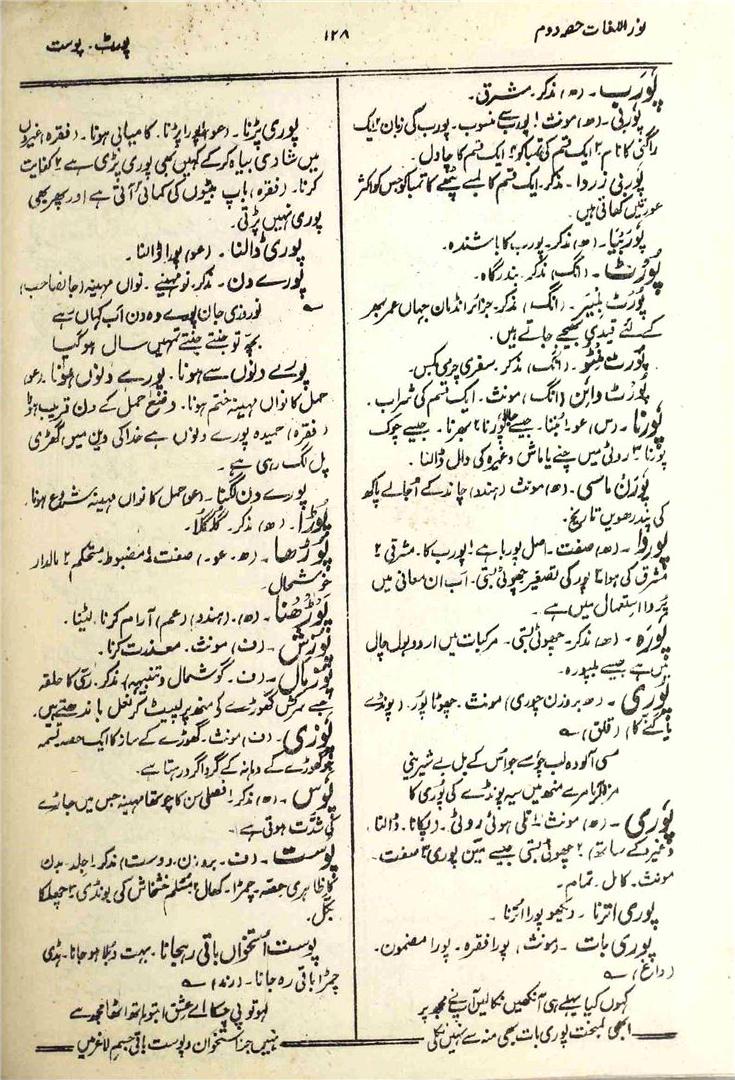 نور اللغات حصہ دوم
۱۲۸
پورٹ۔ پوست
پُورَب۔ (ھ) مذکر۔ مشرق۔
پوربی۔ (ھ) مونث ۱ پورب سے منسوب۔ پورب کی زبان ۲ ایک
راگنی کا نام ۳ ایک قسم کی تمباکو ۴ ایک قسم کا چاول۔
پوربی زردا۔ مذکر۔ ایک قسم کا لمبے پتّے کا تمباکو جس کو اکثر
عورتیں کھاتی ہیں۔
پُورَبیا۔ (ھ) مذکر۔ پورب کا باشندہ۔
پُورٹ۔ (انگ) مذکر۔ بندرگاہ۔
پورٹ بلیر۔ (انگ) مذکر۔ جزائر انڈمان جہاں عمر بھر
کے لئے قیدی بھیجے جاتے ہیں۔
پورٹ منٹو۔ (انگ) مذکر۔ سفری چرمی بکس۔
پورٹ وائن (انگ) مونث۔ ایک قسم کی شراب۔
پُورنا۔ (س) عو۔ ۱ بُننا۔ جیسے جالا پورنا ۲ بھرنا۔ جیسے چوک
پورنا ۳ روٹی میں چنے یا ماش وغیرہ کی دال ڈالنا۔
پورن ماسی۔ (ھ) مونث (ہندو) چاند کے اُجالے پاکھ
کی پندرھویں تاریخ۔
پوروا۔ (ھ) صفت۔ اصل پورباہے ۱ پورب کا۔ مشرقی ۲
مشرق کی ہوا ۳ پور کی تصغیر چھوٹی بستی۔ اب ان معانی میں
پُروا استعمال میں ہے۔
پُورَہ۔ (ھ) مذکر۔ چھوٹی بستی۔ مرکبات میں اردو بول چال
میں ہے جیسے بلیپورہ۔
پوری۔ (ھ بروزن چوری) مونث۔ چھوٹا پور۔ (پونڈے
یا گنّے کا) (قلق) ؎
مسی آلودہ لب چوسے جو اُس کے بل بے شیرینی
مزہ آیا مرے منھ میں سیہ پونڈے کی پوری کا
پُوری۔ (ھ) مونث ۱ تلی ہوئی روٹی۔ (پکانا۔ ڈالنا۔
وغیرہ کے ساتھ) ۲ چھوٹی بستی جیسے مین پوری ۳ صفت۔
مونث۔ کامل۔ تمام۔
پوری اترنا۔ دیکھو پورا اترنا۔
پوری بات۔ (مونث) پورا فقرہ۔ پورا مضمون۔
(داغ) ؎
کہوں کیا پہلے ہی آنکھیں نکالیں آپ نے مجھ پر
ابھی کمبخت پوری بات بھی منہ سے نہیں نکلی
پوری پڑنا۔ (عو) پورا پڑنا۔ کامیابی ہونا۔ (فقرہ) غیروں
میں شادی بیاہ کرکے کہیں بھی پوری پڑی ہے ۲ کفایت
کرنا۔ (فقرہ) باپ بیٹوں کی کمائی آتی ہے اور پھر بھی
پوری نہیں پڑتی۔
پوری ڈالنا۔ (عو) پورا ڈالنا۔
پورے دن۔ مذکر۔ نو مہینے۔ نواں مہینہ (جانصاحب) ؎
نوروزی جان پورے وہ دن اب کہاں ہے
بچہ تو جنتے جنتے تمہیں سال ہو گیا
پورے دنوں سے ہونا۔ پورے دنوں ہونا۔ (عو)
حمل کا نواں مہینہ ختم ہونا۔ وضع حمل کے دن قریب ہونا
(فقرہ) حمیدہ پورے دنوں ہے خدا کی دین میں گھڑی
پل لگ رہی ہے۔
پورے دن لگنا۔ (عو) حمل کا نواں مہینہ شروع ہونا۔
پوڑا۔ (ھ) مذکر۔ گلگلا۔
پوڑھا۔ (ھ۔ عو۔) صفت ۱ مضبوط مستحکم ۲ مالدار
خوشحال۔
پوڑھنا۔ (ھ)۔ (ہندو) (عم) آرام کرنا۔ لیٹنا۔
پُوزش۔ (ف) مونث۔ معذرت کرنا۔
پوزمال۔ (ف۔ گوشمال و تنبیہ) مذکر۔ رسّی کا حلقہ
جسے سرکش گھوڑے کے منہ پر لپیٹ کر نعل باندھتے ہیں۔
پوزی۔ (ف) مونث۔ گھوڑے کے ساز کا ایک حصہ تسمہ
جو گھوڑے کے دہانہ کے گرداگرد رہتا ہے۔
پُوس۔ (ھ) مذکر۔ ۱ فصلی سن کا چوتھا مہینہ جس میں جاڑے
کی شدّت ہوتی ہے۔
پوست۔ (ف۔ بروزن دوست) مذکر۔ ۱ جلد۔ بدن
کا ظاہری حصہ۔ چمڑا۔ کھال ۲ مسلّم خشخاش کی بونڈی ۳ چھلکا
بکل۔
پوست اُستخواں باقی رہجانا۔ بہت دُبلا ہو جانا۔ ہڈی
چمڑا باقی رہ جانا۔ (رند) ؎
لہو تو پی چکا اے عشق ابتو ہاتھ اٹھا مجھ سے
نہیں جز استخوان و پوست باقی جسم لاغر میں